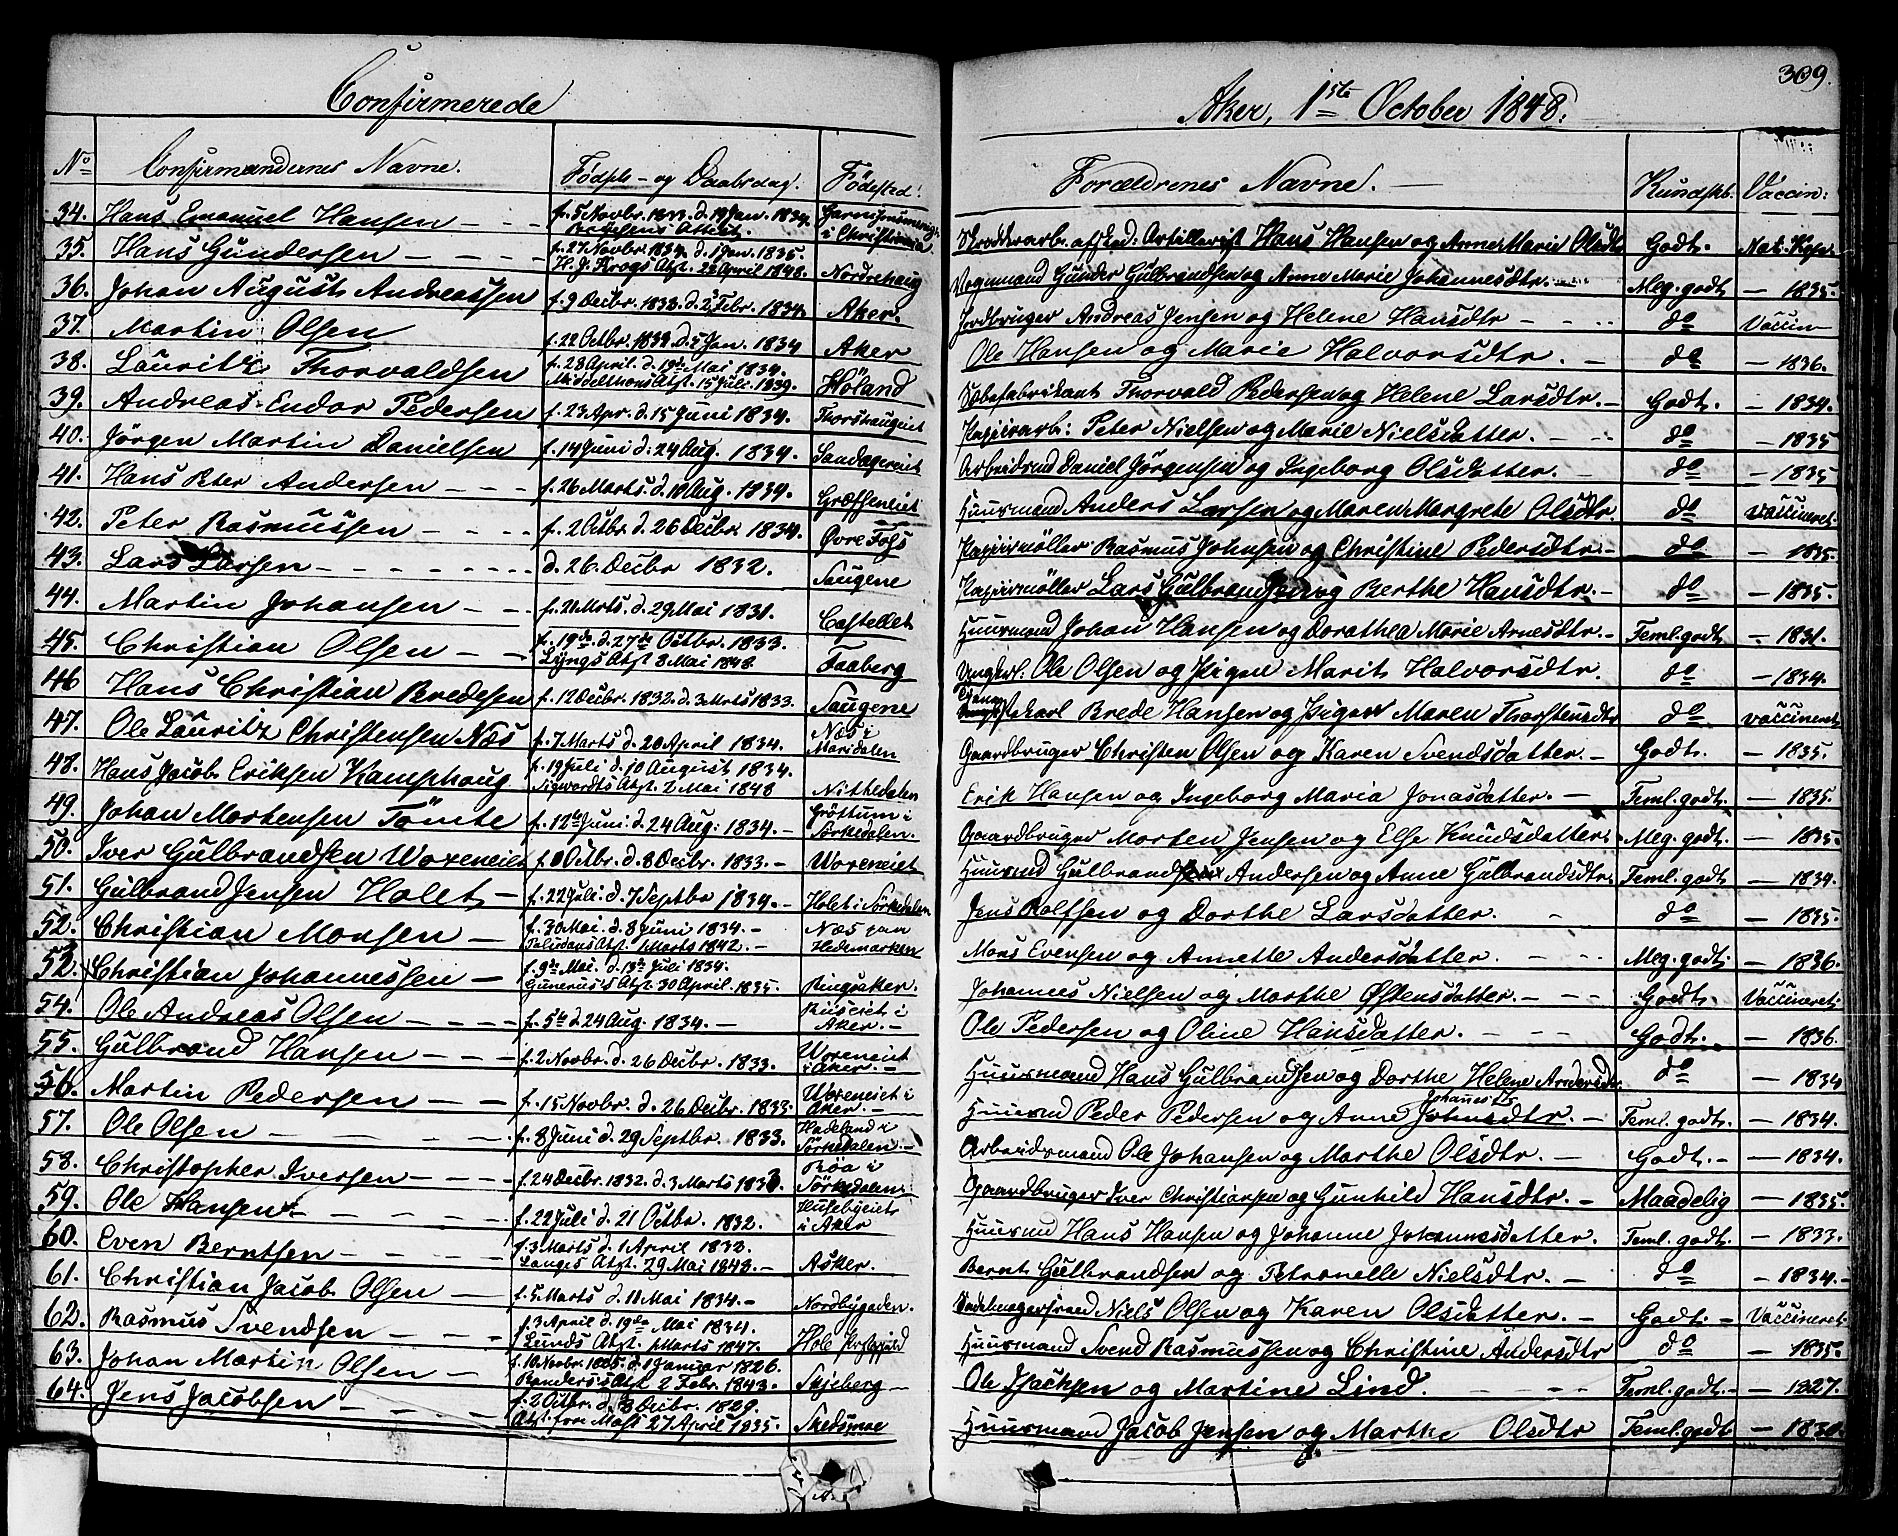 Confirmerede
Aker, 1ste October 1848.
309.
No Confirmandernes Navne. Födsels- og Daabsdag. Födested. Forældrenes Navne. Kundskb. Vaccin:
34. Hans Emanuel Hansen f. 5 Novbr. 1833. d. 19 Jan. 1834. Attest. Garnisonsmenigh. i Christiania Skrædderarb. afsked. Artillerist Hans Hansen og Anne Marie Olsdtr Godt. Nat. Kop.
35. Hans Gundersen f. 27 Novbr 1834. d. 1 Jan. 1835. H. J. Krogs Atst. 28 April 1848. Nordrehaug Vognmand Gunder Gulbrandsen og Anne Marie Johannesdtr. Meg. godt — 1835.
36. Johan August Andreassen f. 9 Decbr. 1833. d. 2 Febr. 1834. Aker. Jordbruger Andreas Jensen og Helene Hansdtr do Vaccin
37. Martin Olsen f. 22 Octbr. 1833. d. 5 Jan. 1834 Aker Ole Hansen og Marie Halvorsdtr. do — 1836.
38. Lauritz Thorvaldsen f. 28 April. d. 19de Mai 1834. Middelthons Atst. 15 Juli 1839. Höland Sæbefabrikant Thorvald Pedersen og Helene Larsdtr. Godt. — 1834.
39. Andreas Endor Pedersen f. 23 Apr. d. 15 Juni 1834. Thorshaugeiet Papirarb: Peter Nielsen og Marie Nielsdatter. do — 1835
40. Jörgen Martin Danielsen f. 14 Juni d. 24 Aug. 1834. Sandagereiet Arbeidsmd Daniel Jörgensen og Ingeborg Olsdatter. do — 1835
41. Hans Peter Andersen f. 26 Marts. d. 10 Aug. 1834. Græfseneiet Huusmand Anders Larsen og Maren Margrete Olsdtr. do Vaccineret.
42. Peter Rasmussen f. 2 Octbr. d. 26 Decbr 1834. Øvre Fos Papirmöller Rasmus Johnsen og Christine Pedersdtr. do — 1835.
43. Lars Larsen d. 26. Decbr 1832. Saugene Papirmöller Lars Gulbrandsen og Berthe Hansdtr. do — 1835.
44. Martin Johansen f. 21 Mrts. d. 29 Mai 1831. Castellet Huusmand Johan Hansen og Dorathea Marie Arnesdtr. Teml. godt — 1831.
45. Christian Olsen f. 19de d. 27de Octbr. 1833. Lyngs Atst 8 Mai 1848. Faaberg Ungkrl. Ole Olsen og Pigen Marit Halvorsdtr. do — 1834.
46 Hans Christian Bredesen f. 12 Decbr. 1832. d. 3 Mrts 1833. Saugene karl Brede Hansen og Pigen Maren Thorstensdtr do Vaccineret
47. Ole Lauritz Christensen Næs f. 7 Marts d. 20 April 1834. Næs i Maridalen Gaardbruger Christen Olsen og Karen Svendsdatter. Godt. — 1835.
48. Hans Jacob Eriksen Kamphaug f. 19 Juli d. 10 August 1834. Sigwardts Atst. 2 Mai 1848 Nittedalen Erik Hansen og Ingeborg Maria Jonasdatter. Teml. godt. — 1835.
49. Johan Mortensen Tömte f. 12te Juni. d. 24 Aug: 1834. Gröttum i Sörkedalen. Gaardbruger Morten Jensen og Else Knudsdatter. Meg. godt. — 1835.
50. Iver Gulbrandsen Woxeneiet Octbr. d. 8 Decbr. 1833. Woxeneiet Huusmd Gulbrand Andersen og Anne Gulbrandsdtr. Teml. godt. — 1834.
51. Gulbrand Jensen Holet f. 22 Juli. d. 7 Septbr 1834. Holet i Sörkedalen Jens Rolfsen og Dorthe Larsdatter. do — 1835.
52. Christian Monsen f. 30 Mai. d. 8 Juni 1834. Atst. 1 Marts 1842. Næs paa Hedemarken Mons Evensen og Annette Andersdatter. Meg. godt. — 1836.
53. Christian Johannessen f. 9de Mai. d. 13de Juli 1834. Atst. 30 April. 1835. Ringsaker. Johannes Nielsen og Marthe Østensdatter. Godt. Vaccineret.
54. Ole Andreas Olsen f. 5te d. 24 Aug. 1834. Ruseiet i Aker. Ole Pedersen og Oline Hansdatter. Godt. — 1836.
55. Gulbrand Hansen f. 2 Novbr. d. 26 Decbr. 1833. Woxeneiet i Aker. Huusmand Hans Gulbrandsen og Dorthe Helene Andersdtr. do — 1834
56. Martin Pedersen f. 15 Novbr. d. 26 Decbr. 1833. Woxeneiet i Aker. Huusmd Peder Pedersen og Anne Johannesdtr. Teml. godt. — 1834.
57. Ole Olsen f. 8 Juni d. 29 Septbr. 1833. Hadeland i Sörkedalen. Arbeidsmand Ole Johansen og Marthe Olsdtr. Godt. — 1834.
58. Christopher Iversen f. 24 Decbr. 1832. d. 3 Marts 1833. Röa i Sörkedalen. Gaardbruger Iver Christiansen og Gunhild Hansdtr. Maadelig — 1835.
59. Ole Hansen f. 22 Juli d. 21 Octbr. 1832. Husebyeiet i Aker Huusmd Hans Hansen og Johanne Johannesdatter. Teml. godt. — 1833.
60. Even Berntsen f. 3 Marts d. 1 April 1833. Langes Atst. 29 Mai 1843. Asker. Bernt Gulbrandsen og Petronelle Nielsdtr. do — 1834.
61. Christian Jacob Olsen f. 5 Marts d. 11 Mai 1834. Nordbygaden. Niels Olsen og Karen Olsdatter. Godt. Vaccineret
62. Rasmus Svendsen f. 3 April d. 19de Mai 1834. Lunds Atst. Marts 1847. Hole Huusmand Svend Rasmussen og Christine Andersdtr do — 1835.
63. Johan Martin Olsen f. 10 Novbr. 1825. d. 1 Januar 1826. Atst 2 Febr. 1843. Skjeberg Ole Isachsen og Martine Lind. Teml. godt. — 1827.
64. Jens Jacobsen f. 2 Octbr. d. 8 Decbr. 1829. Atst. fra Moss 27 April 1835. Skedsmoe Huusmand Jacob Jensen og Marthe Olsdtr Teml. godt — 1830.